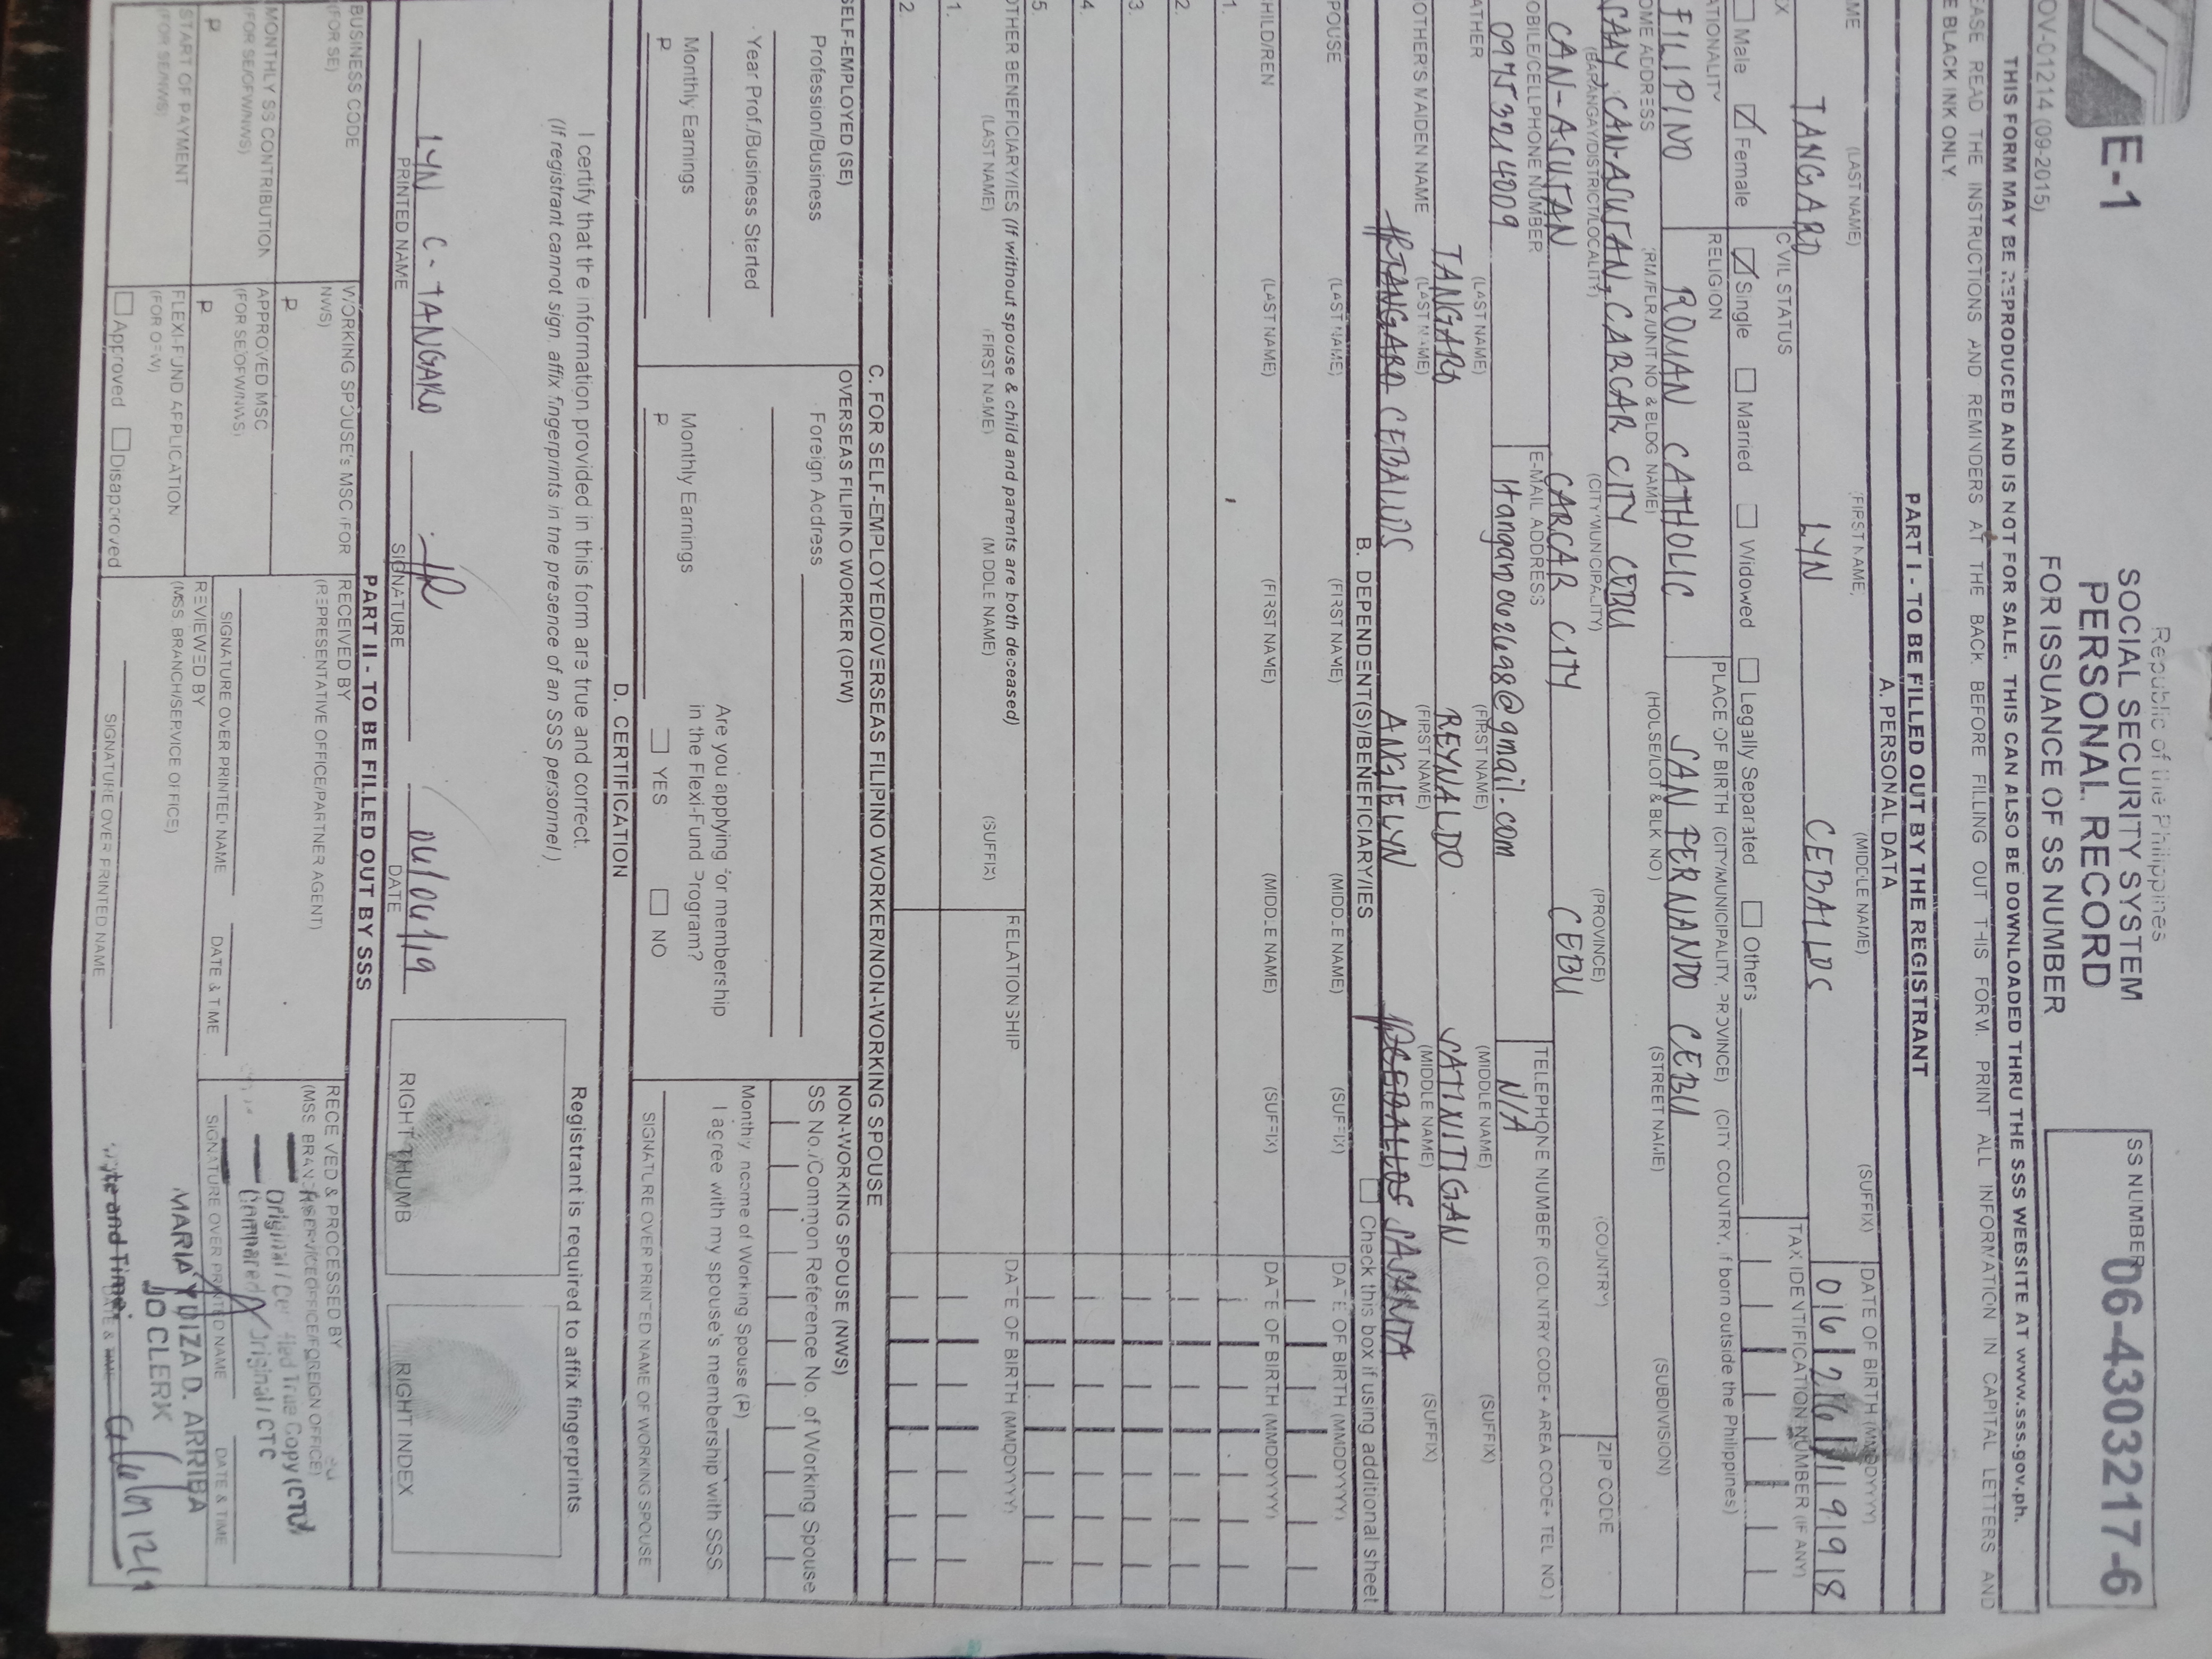 Republic of the Philippines
SOCIAL SECURITY SYSTEM
PERSONAL RECORD
FOR ISSUANCE OF SS NUMBER
E-1
OV-01214 (09-2015)
SS NUMBER
06-4303217-6
THIS FORM MAY BE REPRODUCED AND IS NOT FOR SALE. THIS CAN ALSO BE DOWNLOADED THRU THE SSS WEBSITE AT www.sss.gov.ph.
EASE READ THE INSTRUCTIONS AND REMINDERS AT THE BACK BEFORE FILLING OUT THIS FORM. PRINT ALL INFORMATION IN CAPITAL LETTERS AND
E BLACK INK ONLY.
PART I - TO BE FILLED OUT BY THE REGISTRANT
A. PERSONAL DATA
ME (LAST NAME) (FIRST NAME) (MIDDLE NAME) (SUFFIX) DATE OF BIRTH (MMDDYYYY)
TANGARO LYN CEBALLOS 06 26 1998
EX CIVIL STATUS TAX IDENTIFICATION NUMBER (IF ANY)
Male Female Single Married Widowed Legally Separated Others
ATIONALITY RELIGION PLACE OF BIRTH (CITY/MUNICIPALITY, PROVINCE) (CITY COUNTRY, if born outside the Philippines)
FILIPINO ROMAN CATHOLIC SAN FERNANDO CEBU
OME ADDRESS (RM/FLR/UNIT NO & BLDG NAME) (HOUSE/LOT & BLK NO) (STREET NAME) (SUBDIVISION)
SAAY CAN-ASUJAN, CARCAR CITY CEBU
(BARANGAY/DISTRICT/LOCALITY) (CITY/MUNICIPALITY) (PROVINCE) (COUNTRY) ZIP CODE
CAN-ASUJAN CARCAR CITY CEBU
OBILE/CELLPHONE NUMBER E-MAIL ADDRESS TELEPHONE NUMBER (COUNTRY CODE+ AREA CODE+ TEL NO.)
09753214009 ltangaro062698@gmail.com N/A
ATHER (LAST NAME) (FIRST NAME) (MIDDLE NAME) (SUFFIX)
TANGARO REYNALDO SATINITIGAN
OTHER'S MAIDEN NAME (LAST NAME) (FIRST NAME) (MIDDLE NAME) (SUFFIX)
TANGARO CEBALLOS ANGIELYN CEBALLOS SASANTA
B. DEPENDENT(S)/BENEFICIARY/IES Check this box if using additional sheet
POUSE (LAST NAME) (FIRST NAME) (MIDDLE NAME) (SUFFIX) DATE OF BIRTH (MMDDYYYY)
HILD/REN (LAST NAME) (FIRST NAME) (MIDDLE NAME) (SUFFIX) DATE OF BIRTH (MMDDYYYY)
1.
2.
3.
4.
5.
OTHER BENEFICIARY/IES (If without spouse & child and parents are both deceased)
(LAST NAME) (FIRST NAME) (MIDDLE NAME) (SUFFIX) RELATIONSHIP DATE OF BIRTH (MMDDYYYY)
1.
2.
C. FOR SELF-EMPLOYED/OVERSEAS FILIPINO WORKER/NON-WORKING SPOUSE
SELF-EMPLOYED (SE) OVERSEAS FILIPINO WORKER (OFW) NON-WORKING SPOUSE (NWS)
Profession/Business Foreign Address SS No./Common Reference No. of Working Spouse
Year Prof./Business Started Are you applying for membership in the Flexi-Fund Program? Monthly Income of Working Spouse (₱)
Monthly Earnings Monthly Earnings I agree with my spouse's membership with SSS
₱ ₱ YES NO SIGNATURE OVER PRINTED NAME OF WORKING SPOUSE
D. CERTIFICATION
I certify that the information provided in this form are true and correct.
(If registrant cannot sign, affix fingerprints in the presence of an SSS personnel.)
Registrant is required to affix fingerprints
LYN C. TANGARO 06/06/19
PRINTED NAME SIGNATURE DATE RIGHT THUMB RIGHT INDEX
PART II - TO BE FILLED OUT BY SSS
BUSINESS CODE (FOR SE) WORKING SPOUSE's MSC (FOR NWS) RECEIVED BY RECEIVED & PROCESSED BY
₱ (REPRESENTATIVE OFFICE/PARTNER AGENT) (MSS BRANCH/SERVICE OFFICE/FOREIGN OFFICE)
Original/Certified True Copy (CTC)
Compared Original/CTC
MONTHLY SS CONTRIBUTION (FOR SE/OFW/NWS) APPROVED MSC (FOR SE/OFW/NWS)
₱ ₱ SIGNATURE OVER PRINTED NAME DATE & TIME SIGNATURE OVER PRINTED NAME DATE & TIME
START OF PAYMENT (FOR SE/NWS) FLEXI-FUND APPLICATION (FOR OFW) REVIEWED BY
Approved Disapproved (MSS BRANCH/SERVICE OFFICE)
MARIA YDIZA D. ARRIBA
JO CLERK
SIGNATURE OVER PRINTED NAME Date and Time: DATE & TIME